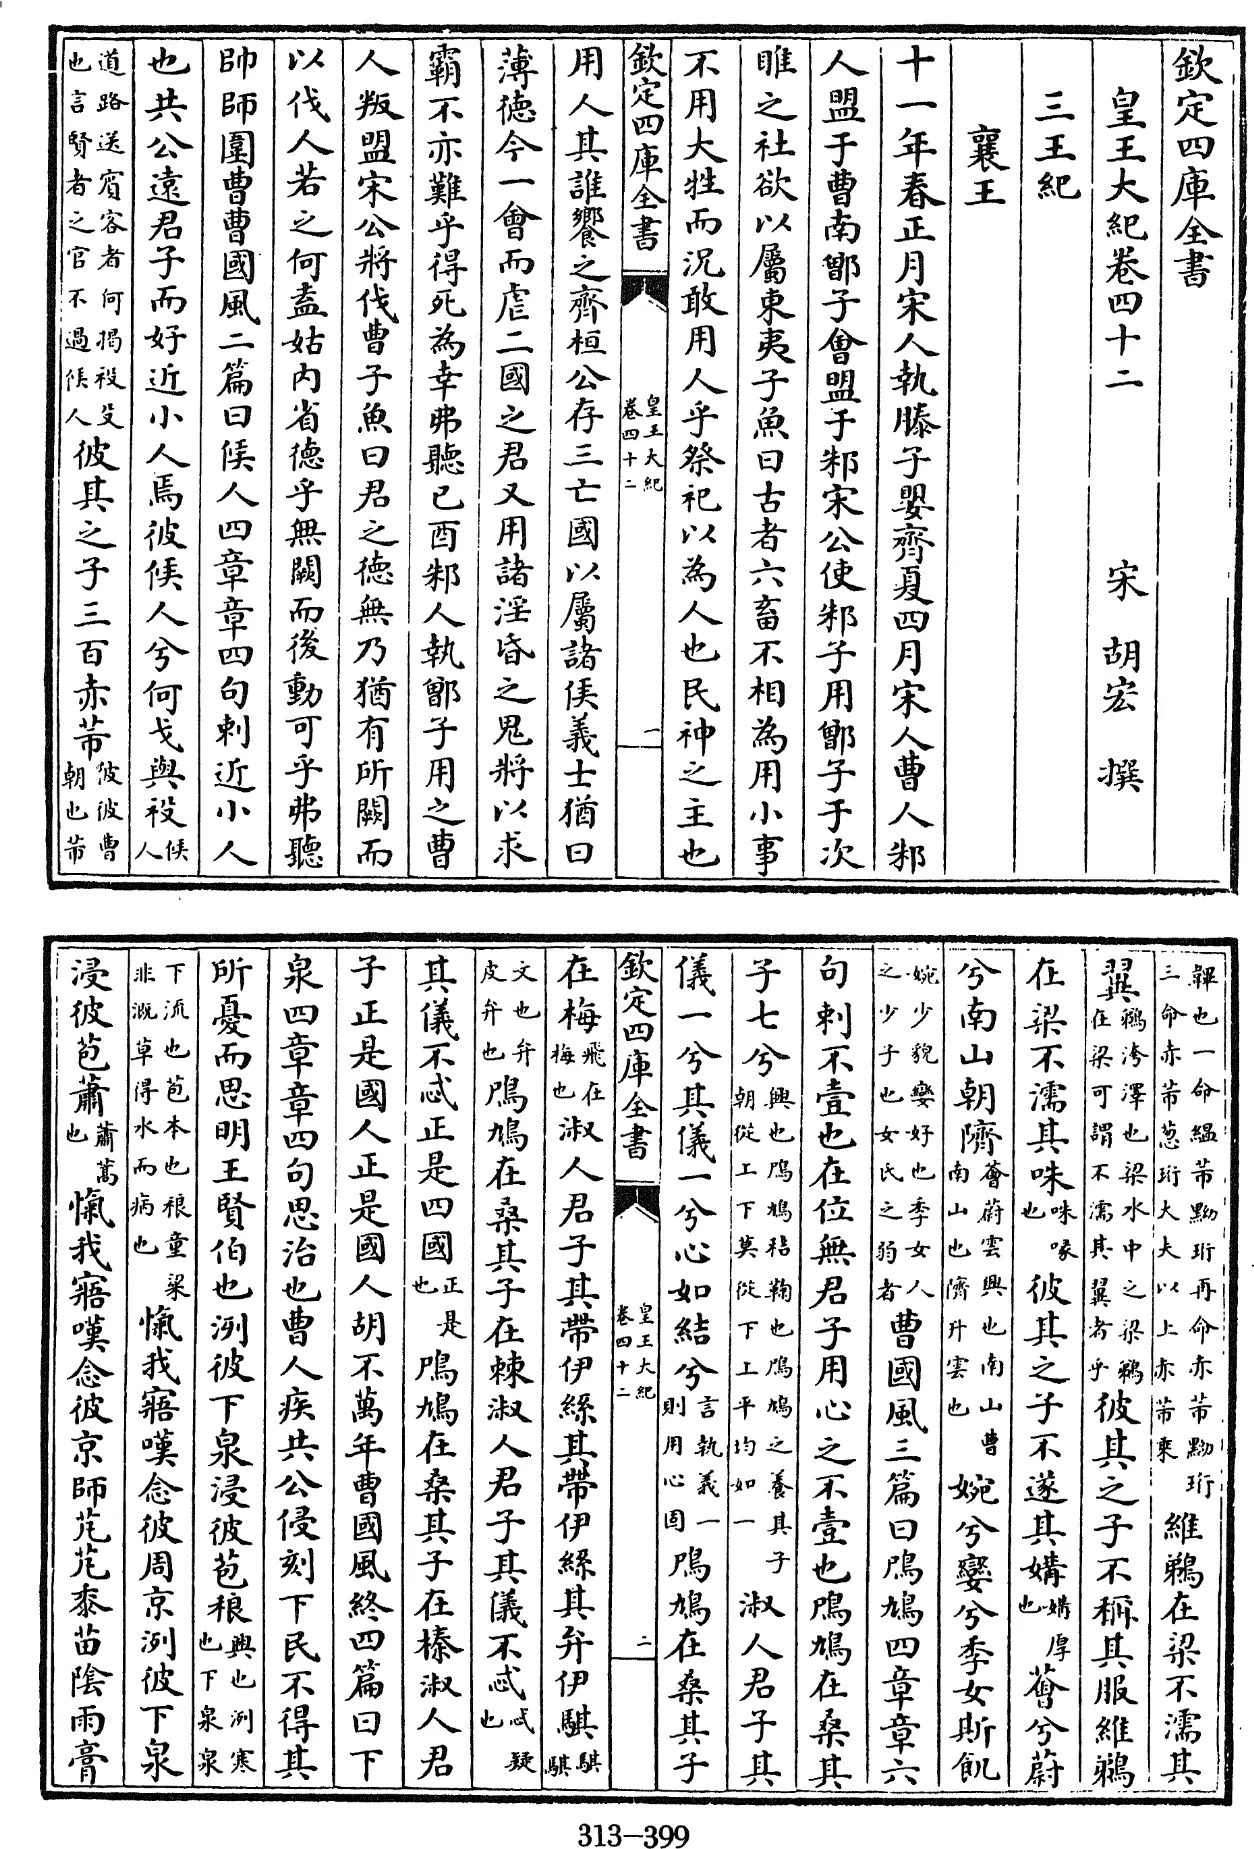 欽定四庫全書
皇王大紀卷四十二　宋　胡宏　撰
三王紀
襄王
十一年春正月宋人執滕子嬰齊夏四月宋人曹人邾
人盟于曹南鄫子會盟于邾宋公使邾子用鄫子于次
睢之社欲以屬東夷子魚曰古者六畜不相為用小事
不用大牲而況敢用人乎祭祀以為人也民神之主也
用人其誰饗之齊桓公存三亡國以屬諸侯義士猶曰
薄德今一會而虐二國之君又用諸淫昏之鬼將以求
霸不亦難乎得死為幸弗聽己酉邾人執鄫子用之曹
人叛盟宋公將伐曹子魚曰君之德無乃猶有所闕而
以伐人若之何盍姑内省德乎無闕而後動可乎弗聽
帥師圍曹曹國風二篇曰侯人四章章四句刺近小人
也共公遠君子而好近小人焉彼侯人兮何戈與祋侯人
道路送賓客者何揭祋殳也言賢者之官不過侯人彼其之子三百赤芾彼彼曹朝也芾
欽定四庫全書
皇王大紀
卷四十二
一
韠也一命縕芾黝珩再命赤芾黝珩三命赤芾葱珩大夫以上赤芾乘維鵜在梁不濡其
翼鵜洿澤也梁水中之梁鵜在梁可謂不濡其翼者乎彼其之子不稱其服維鵜
在梁不濡其咮咮喙也彼其之子不遂其媾媾厚也薈兮蔚
兮南山朝隮薈蔚雲興也南山曹南山也隮升雲也婉兮孌兮季女斯飢
婉少貌孌好也季女人之少子也女民之弱者曹國風三篇曰鳲鳩四章章六
句刺不壹也在位無君子用心之不壹也鳲鳩在桑其
子七兮興也鳲鳩秸鞠也鳲鳩之養其子朝從上下莫從下上平均如一淑人君子其
儀一兮其儀一兮心如結兮言執義一則用心固鳲鳩在桑其子
在梅飛在梅也淑人君子其帶伊絲其帶伊絲其弁伊騏騏騏
文也弁皮弁也鳲鳩在桑其子在棘淑人君子其儀不忒忒疑也
其儀不忒正是四國正是也鳲鳩在桑其子在榛淑人君
子正是國人正是國人胡不萬年曹國風終四篇曰下
泉四章章四句思治也曹人疾共公侵刻下民不得其
所憂而思明王賢伯也洌彼下泉浸彼苞稂興也洌寒也下泉泉
下流也苞本也稂童粱非溉草得水而病也愾我寤嘆念彼周京洌彼下泉
浸彼苞蕭蕭蒿也愾我寤嘆念彼京師芃芃黍苗陰雨膏
欽定四庫全書
皇王大紀
卷四十二
二
313-399